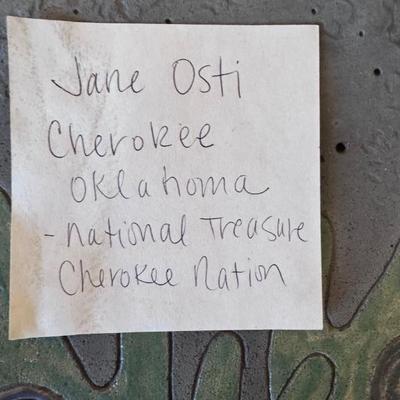 Jane Osti
Cherokee
Oklahoma
- National Treasure
Cherokee Nation